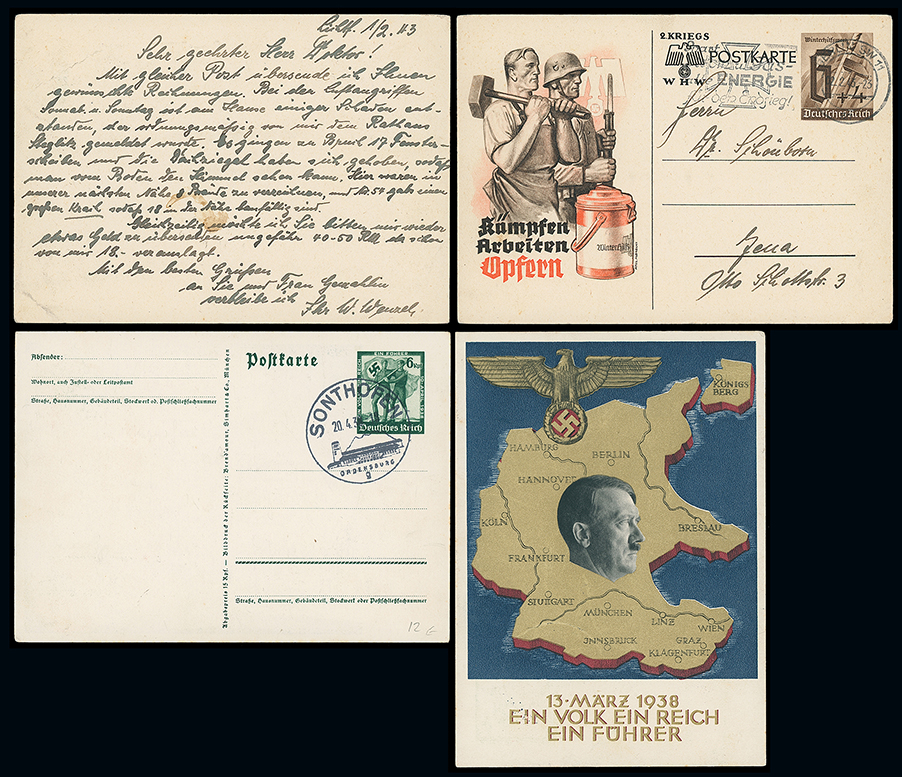 1/2. 43
Sehr geehrter Herr Doktor!
Mit gleicher Post übersende ich Ihnen
gewünschte Rechnungen. Bei den Luftangriffen
Sonnab. u. Sonntag ist am Hause einiger Schaden ent-
standen, der ordnungsmäßig von mir dem Rathaus
Steglitz gemeldet wurde. Es gingen zu Bruch 17 Fenster-
scheiben und die Dachziegel haben sich gehoben, sodaß
man vom Boden den Himmel sehen kann. Hier waren in
unserer nächsten Nähe 8 Brände zu verzeichnen, und Nr. 54 gab einen
großen Krach, sodaß 18 in der Nähe baufällig sind.
Gleichzeitig möchte ich Sie bitten mir wieder
etwas Geld zu übersenden ungefähr 40-50 RM da schon
von mir 18.- verauslagt.
Mit den besten Grüßen
an Sie und Frau Gemahlin
verbleibe ich
Ihr W. Wenzel.
2. KRIEGS
WHW
POSTKARTE
Winterhilfswerk
6+4
Deutsches Reich
ENERGIE
Herrn
Dr. Schönborn
Jena
Otto Schottstr. 3
Kämpfen
Arbeiten
Opfern
Winterhilfe
Absender:
Wohnort, auch Zustell- oder Leitpostamt
Straße, Hausnummer, Gebäudeteil, Stockwerk od. Postschließfachnummer
Abgabepreis 15 Rpf. — Bilddruck der Rückseite: Brendamour, Simhart & Co., München
Postkarte
EIN FÜHRER
6
Deutsches Reich
SONTHOFEN
20.4.3
ORDENSBURG
g
Straße, Hausnummer, Gebäudeteil, Stockwerk oder Postschließfachnummer
12 G
KÖNIGS
BERG
HAMBURG
BERLIN
HANNOVER
KÖLN
BRESLAU
FRANKFURT
STUTTGART
MÜNCHEN
LINZ
WIEN
INNSBRUCK
GRAZ
KLAGENFURT
13·MÄRZ 1938
EIN VOLK EIN REICH
EIN FÜHRER